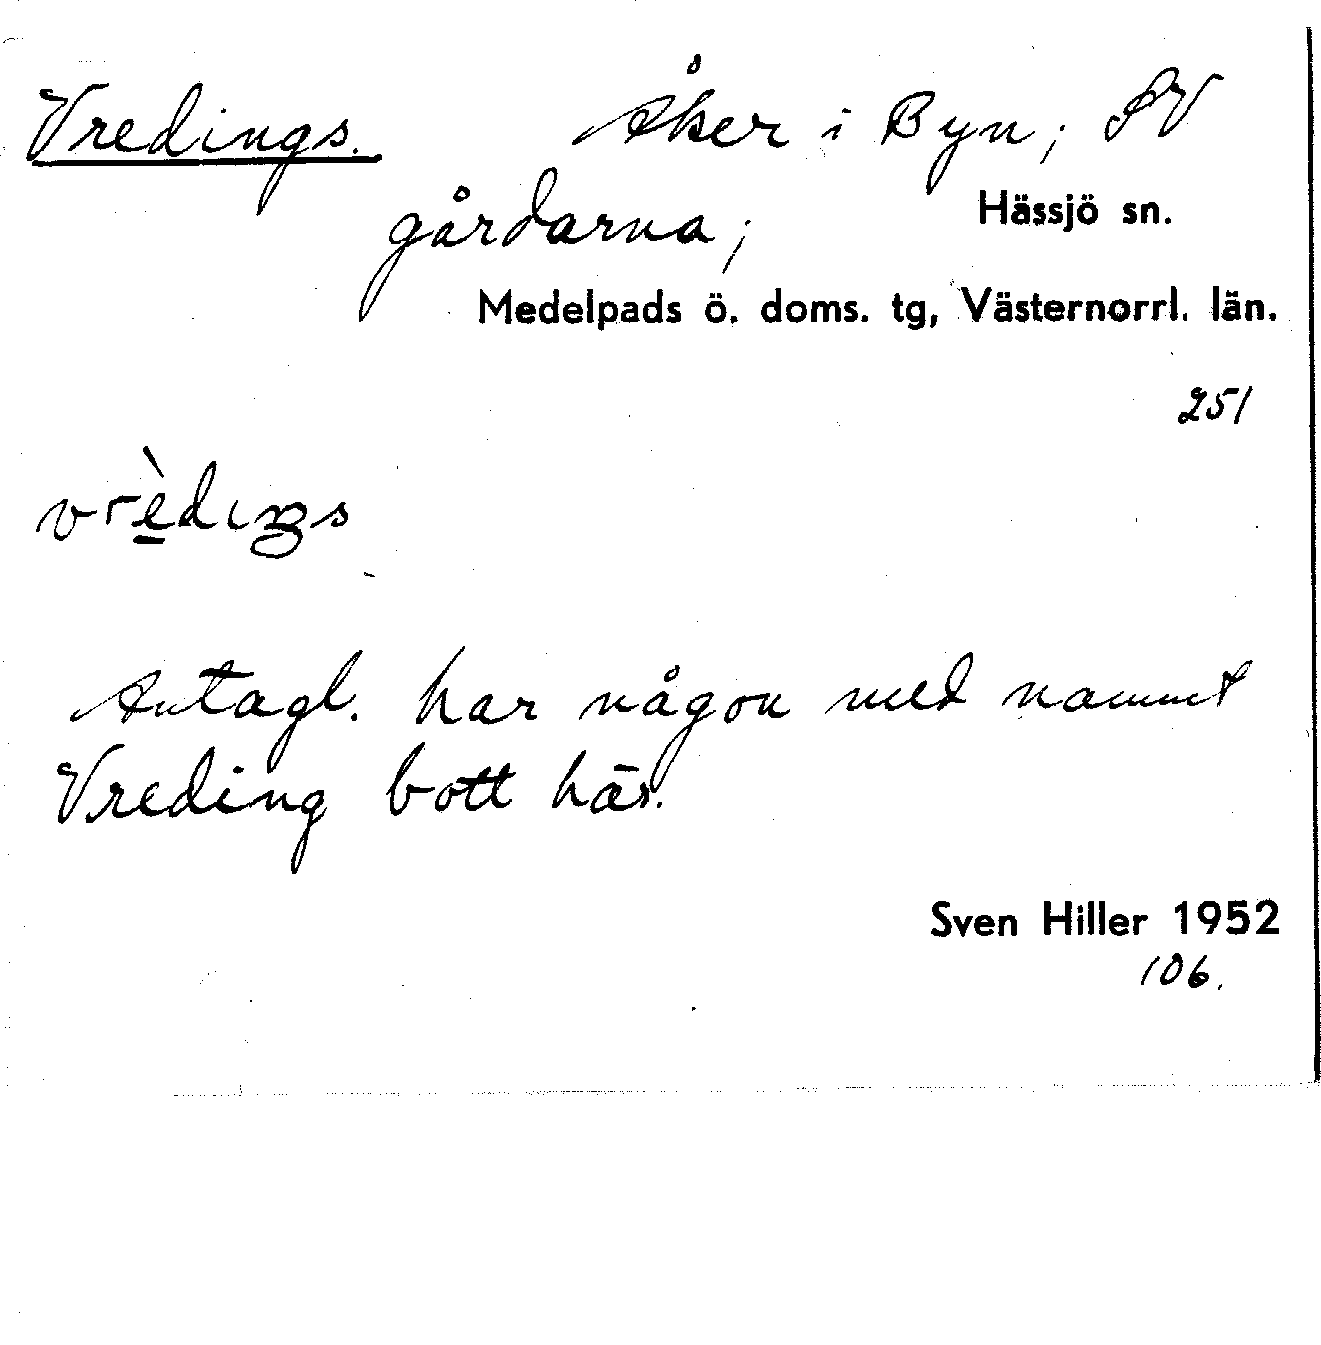 Vredings. Åker i Byn; SV
gårdarna; Hässjö sn.
Medelpads ö. doms. tg, Västernorrl. län.
251
vrèdıŋs
Antagl. har någon med namnet
Vreding bott här.
Sven Hiller 1952
106.